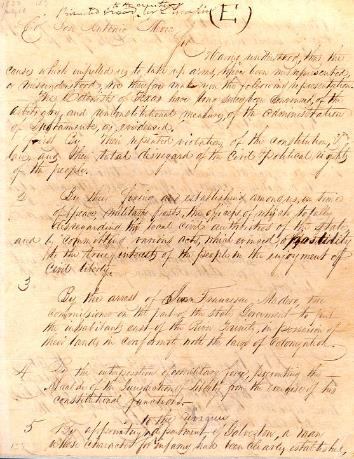 (E)
Col. Jose Antonio Mexia
Sir
Having understood, that the
causes which impelled us to take up arms, have been misrepresented,
or misunderstood, we therefore make you the following representation.
The Colonists of Texas have long since been convinced, of the
arbitrary and unconstitutional measures, of the administration
of Bustamente, as evidenced.
1 First By their repeated violations of the constitution, &
laws and their total disregard of the Civil & Political rights
of the people.
2 By their fixing and establishing among us, in time
of peace, military posts, the officers of which totally
disregarding the local civil authorities of the state
and by committing various acts, which evinced, a hostility
to the true interest of the people in the enjoyment of
civil liberty.
3
By the arrest of Juan Francisco Madero, the
commissioner on the part of the State Government to put
the inhabitants east of the River Jacinto, in possession of
their lands in conformity with the laws of Colonization.
4 By the interposition of military force, preventing the
Alcalde of the Jurisdiction of Liberty from the exercise of his
constitutional functions.
to the
5 By appointing department of Galveston, a man
whose character for infamy had been clearly established,